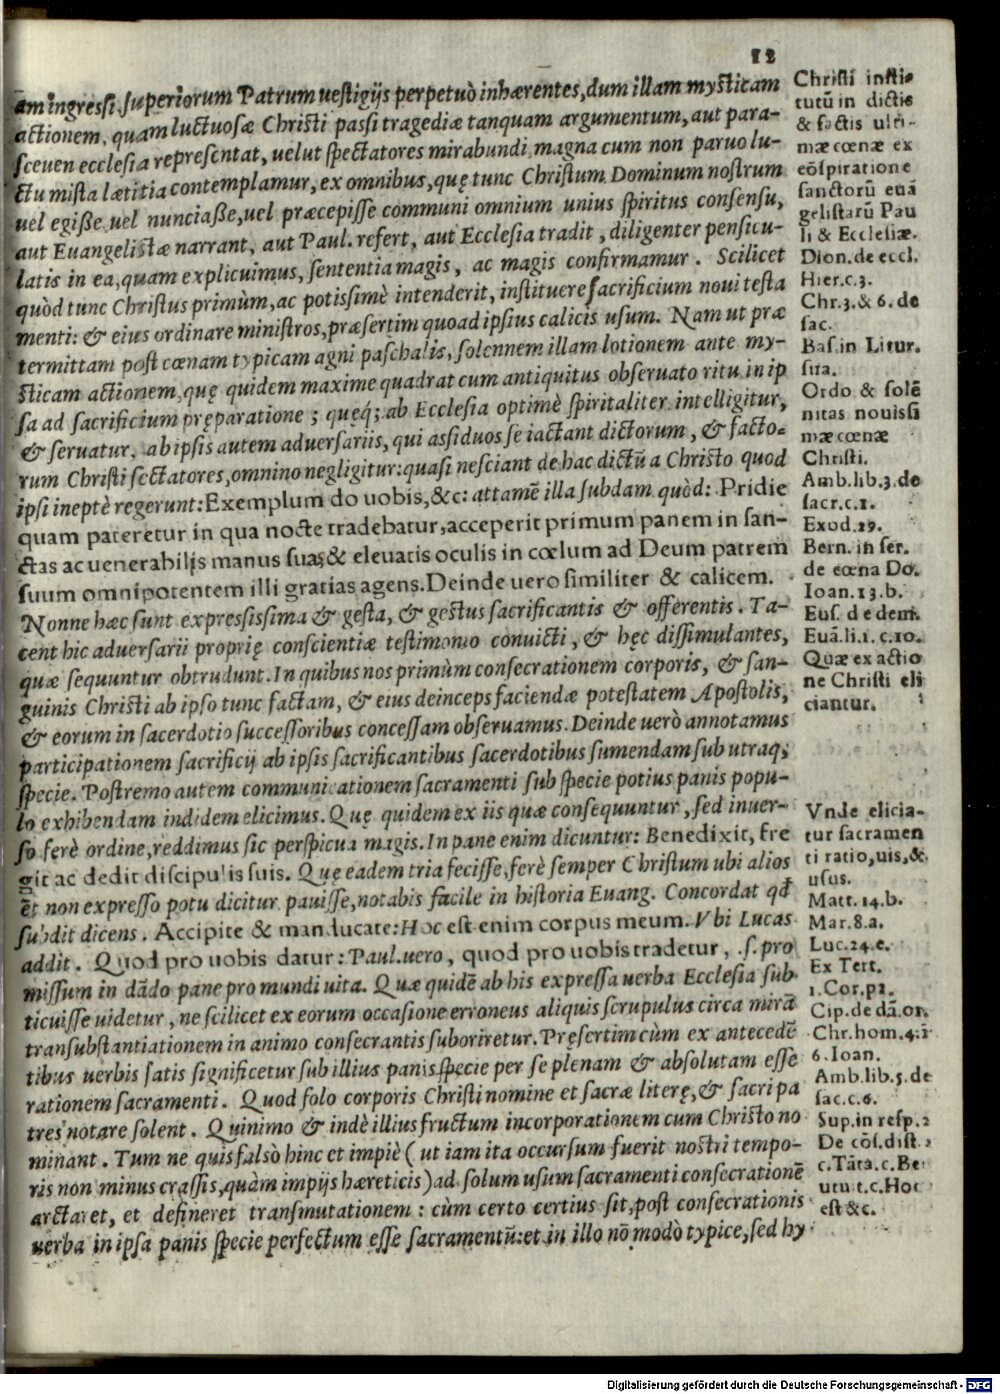 12
am ingressi, superiorum Patrum uestigijs perpetuò inhærentes, dum illam mysticam
actionem, quam luctuosæ Christi passi tragediæ tanquam argumentum, aut para-
sceuen ecclesia repręsentat, uelut spectatores mirabundi, magna cum non paruo lu-
ctu mista lætitia contemplamur, ex omnibus, quę tunc Christum Dominum nostrum
uel egisse, uel nunciasse, uel præcepisse communi omnium unius spiritus consensu,
aut Euangelistæ narrant, aut Paul. refert, aut Ecclesia tradit, diligenter pensicu-
latis in ea, quam explicuimus, sententia magis, ac magis confirmamur. Scilicet
quòd tunc Christus primùm, ac potissimè intenderit, instituere sacrificium noui testa
menti: & eius ordinare ministros, præsertim quoad ipsius calicis usum. Nam ut præ
termittam post cœnam typicam agni paschalis, solennem illam lotionem ante my-
sticam actionem, quę quidem maxime quadrat cum antiquitus obseruato ritu in ip
sa ad sacrificium pręparatione; quęq; ab Ecclesia optimè spiritaliter intelligitur,
& seruatur, ab ipsis autem aduersariis, qui assiduos se iactant dictorum, & facto-
rum Christi sectatores, omnino negligitur: quasi nesciant de hac dictũ a Christo quod
ipsi ineptè regerunt: Exemplum do uobis, &c: attamẽ illa subdam quòd: Pridie
quam pateretur in qua nocte tradebatur, acceperit primum panem in san-
ctas ac uenerabilis manus suas, & eleuatis oculis in cœlum ad Deum patrem
suum omnipotentem illi gratias agens. Deinde uero similiter & calicem.
Nonne hæc sunt expressissima & gesta, & gestus sacrificantis & offerentis. Ta-
cent hic aduersarii proprię conscientiæ testimonio conuicti, & hęc dissimulantes,
quæ sequuntur obtrudunt. In quibus nos primùm consecrationem corporis, & san-
guinis Christi ab ipso tunc factam, & eius deinceps faciendæ potestatem Apostolis,
& eorum in sacerdotio successoribus concessam obseruamus. Deinde uerò annotamus
participationem sacrificij ab ipsis sacrificantibus sacerdotibus sumendam sub utraq;
specie. Postremo autem communicationem sacramenti sub specie potius panis popu-
lo exhibendam indidem elicimus. Quę quidem ex iis quæ consequuntur, sed inuer-
so ferè ordine, reddimus sic perspicua magis. In pane enim dicuntur: Benedixit, fre
git ac dedit discipulis suis. Quę eadem tria fecisse, ferè semper Christum ubi alios
et non expresso potu dicitur pauisse, notabis facile in historia Euang. Concordat qd̃
subdit dicens. Accipite & manducate: Hoc est enim corpus meum. Vbi Lucas
addit. Quod pro uobis datur: Paul. uero, quod pro uobis tradetur, .s. pro
missum in dãdo pane pro mundi uita. Quæ quidẽ ab his expressa uerba Ecclesia sub
ticuisse uidetur, ne scilicet ex eorum occasione erroneus aliquis scrupulus circa mirã
transubstantiationem in animo consecrantis suboriretur. Pręsertim cùm ex antecedẽ
tibus uerbis satis significetur sub illius panis specie per se plenam & absolutam esse
rationem sacramenti. Quod solo corporis Christi nomine et sacræ literę, & sacri pa
tres notare solent. Quinimo & indè illius fructum incorporationem cum Christo no
minant. Tum ne quis falsò hinc et impiè (ut iam ita occursum fuerit nostri tempo-
ris non minus crassis, quàm impijs hæreticis) ad solum usum sacramenti consecrationẽ
arctaret, et defineret transmutationem: cùm certo certius sit, post consecrationis
uerba in ipsa panis specie perfectum esse sacramentũ: et in illo nõ modò typice, sed hy
Christi insti-
tutũ in dictis
& factis ulti-
mæ cœnæ ex
cõspiratione
sanctorũ euã
gelistarũ Pau
li & Ecclesiæ.
Dion. de eccl.
Hier. c. 3.
Chr. 3. & 6. de
sac.
Bas. in Litur.
sua.
Ordo & solẽ
nitas nouissi
mæ cœnæ
Christi.
Amb. lib. 3. de
sacr. c. 1.
Exod. 19.
Bern. in ser.
de cœna Do.
Ioan. 13. b.
Eus. de dem.
Euã. li. 1. c. 10.
Quæ ex actio
ne Christi eli
ciantur.
Vnde elicia-
tur sacramen
ti ratio, uis, &
usus.
Matt. 14. b.
Mar. 8. a.
Luc. 24. e.
Ex Tert.
1. Cor. p1.
Cip. de dã. or.
Chr. hom. 4. ĩ
6. Ioan.
Amb. lib. 5. de
sac. c. 6.
Sup. in resp. 2
De cõs. dist. 2
c. Tãta. c. Be
utut. c. Hoc
est &c.
Digitalisierung gefördert durch die Deutsche Forschungsgemeinschaft - DFG